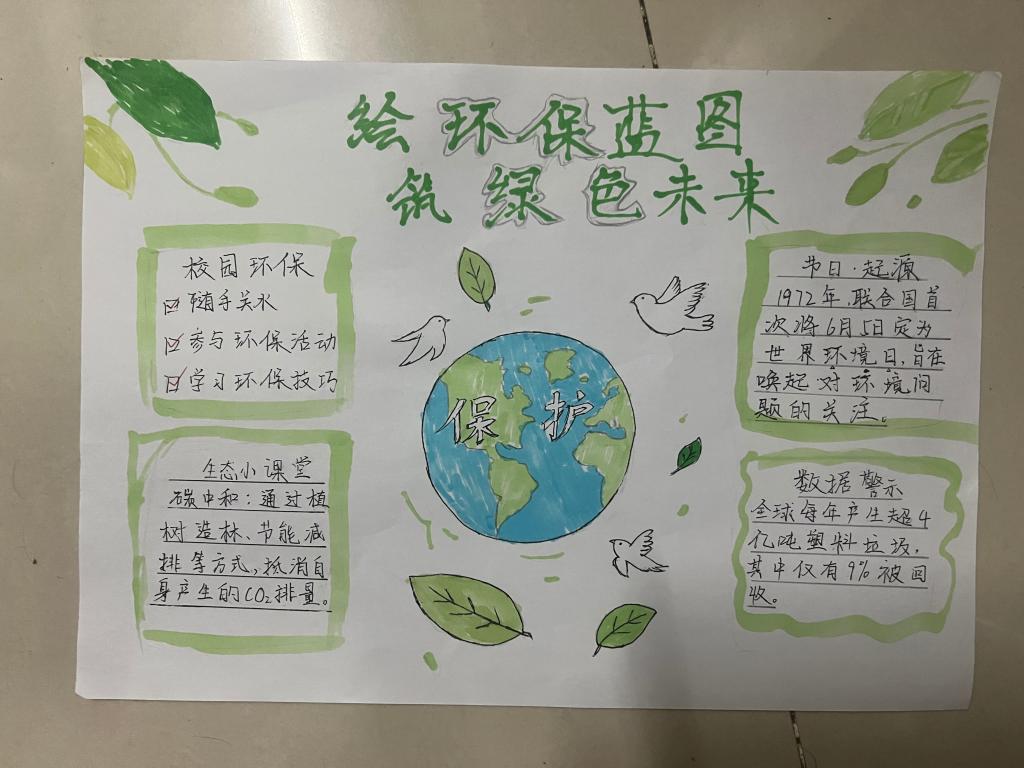 绘环保蓝图
筑绿色未来
校园环保
随手关水
参与环保活动
学习环保技巧
生态小课堂
碳中和：通过植
树造林、节能减
排等方式，抵消自
身产生的CO₂排量。
保护
节日·起源
1972年，联合国首
次将6月5日定为
世界环境日，旨在
唤起对环境问
题的关注。
数据警示
全球每年产生超4
亿吨塑料垃圾，
其中仅有9%被回
收。